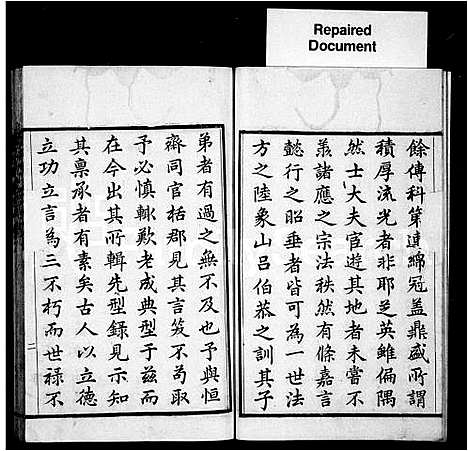 Repaired
Document
餘傳科第連綿冠盖鼎盛所謂
積厚流光者非耶芝英雖偏隅
然士大夫宦遊其地者未嘗不
羨諸應之宗法秩然有條嘉言
懿行之昭垂者皆可為一世法
方之陸象山呂伯恭之訓其子
弟者有過之無不及也予與恒
齋同官栝郡見其言笑不苟取
予必慎輙歎老成典型于兹而
在今出其所輯先型録見示知
其稟承者有素矣古人以立德
立功立言為三不朽而世禄不
二